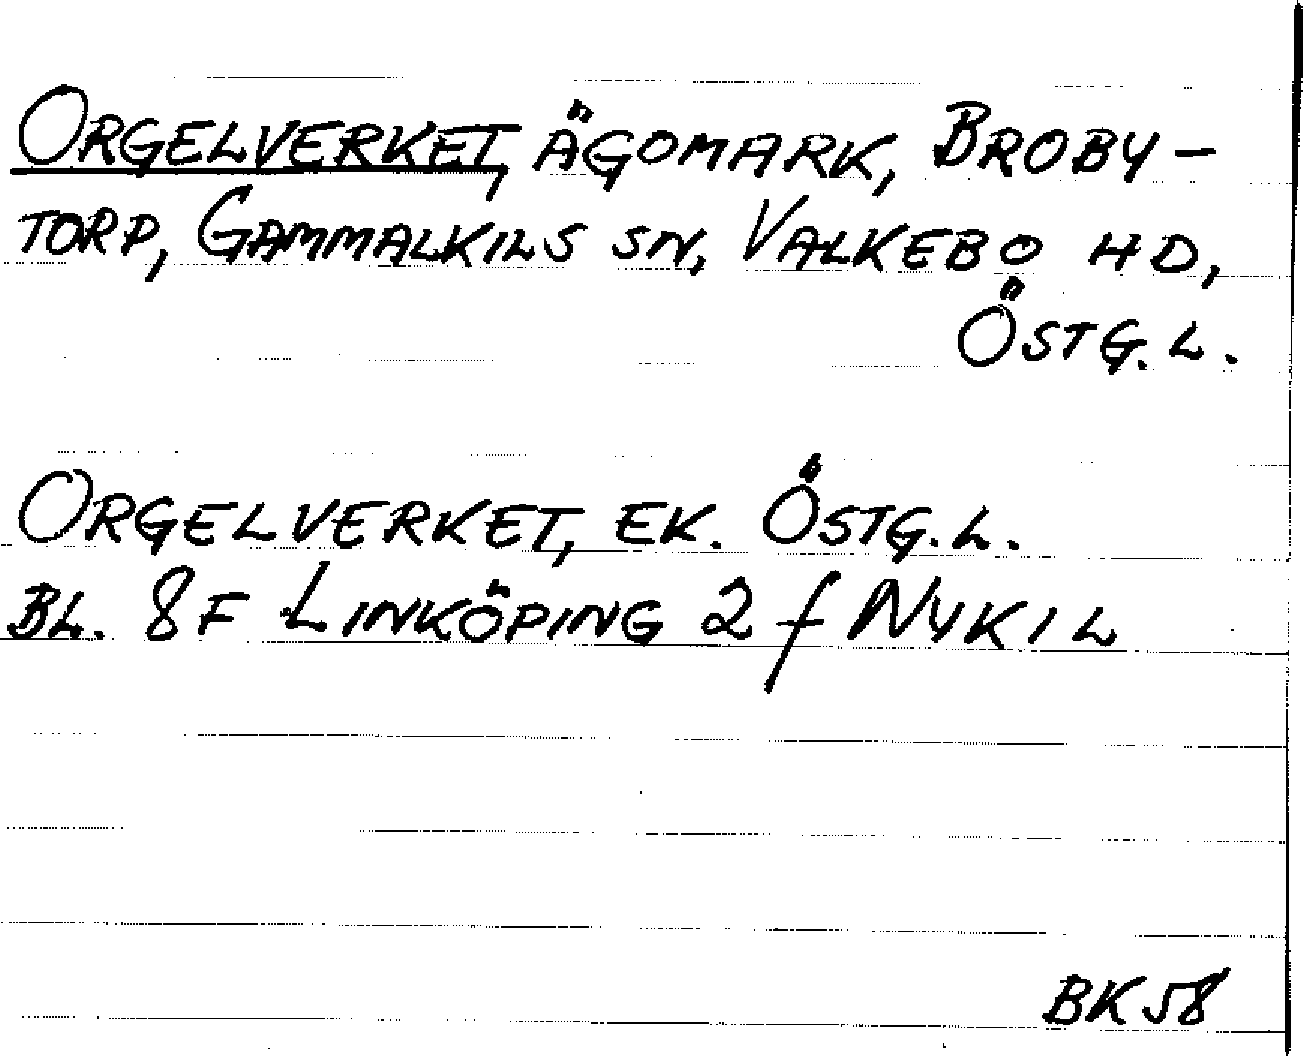 ORGELVERKET, ÄGOMARK, BROBY-
TORP, GAMMALKILS SN, VALKEBO HD,
ÖSTG.L.
ORGELVERKET, EK. ÖSTG.L.
BL. 8F LINKÖPING 2 f NYKIL
BK58